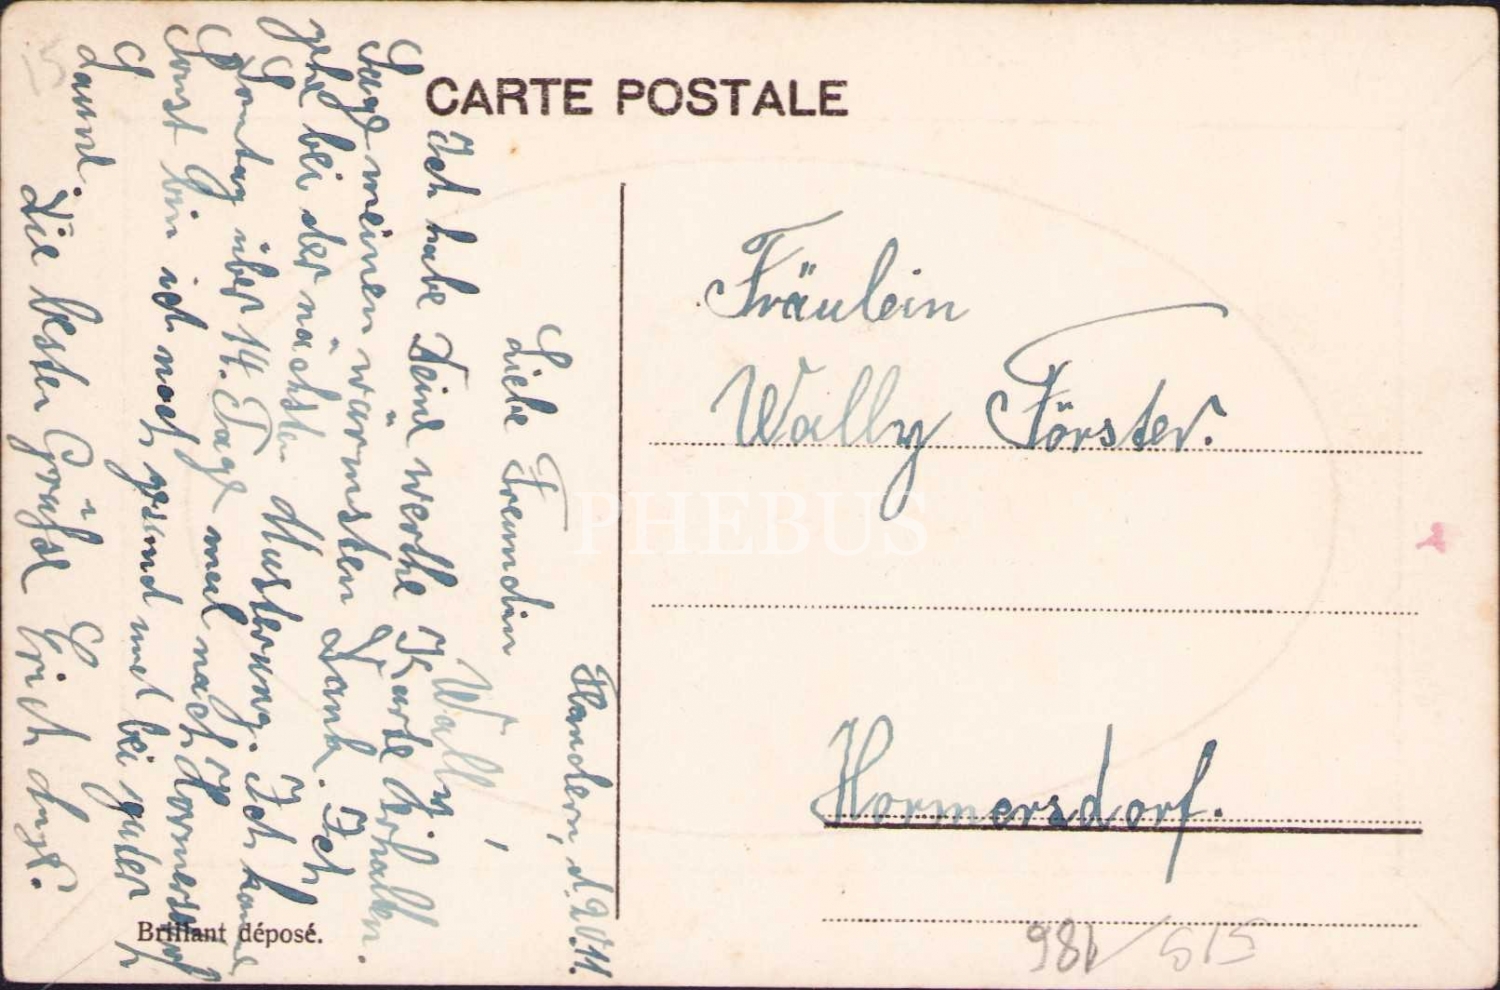 CARTE POSTALE
Flandern, d.
Liebe Freundin
Wally.
Ich habe Deine werthe Karte erhalten.
Sage meinen wärmsten Dank. Ich
gehe bei der nächsten Musterung. Ich komme
Sontag über 14. Tage mal nach Hormersdorf
Sonst bin ich noch gesund und bei guter
Laune.
Die besten Grüße Erich
Brillant déposé.
Fräulein
Wally Förster.
Hormersdorf.
981/515
PHEBUS